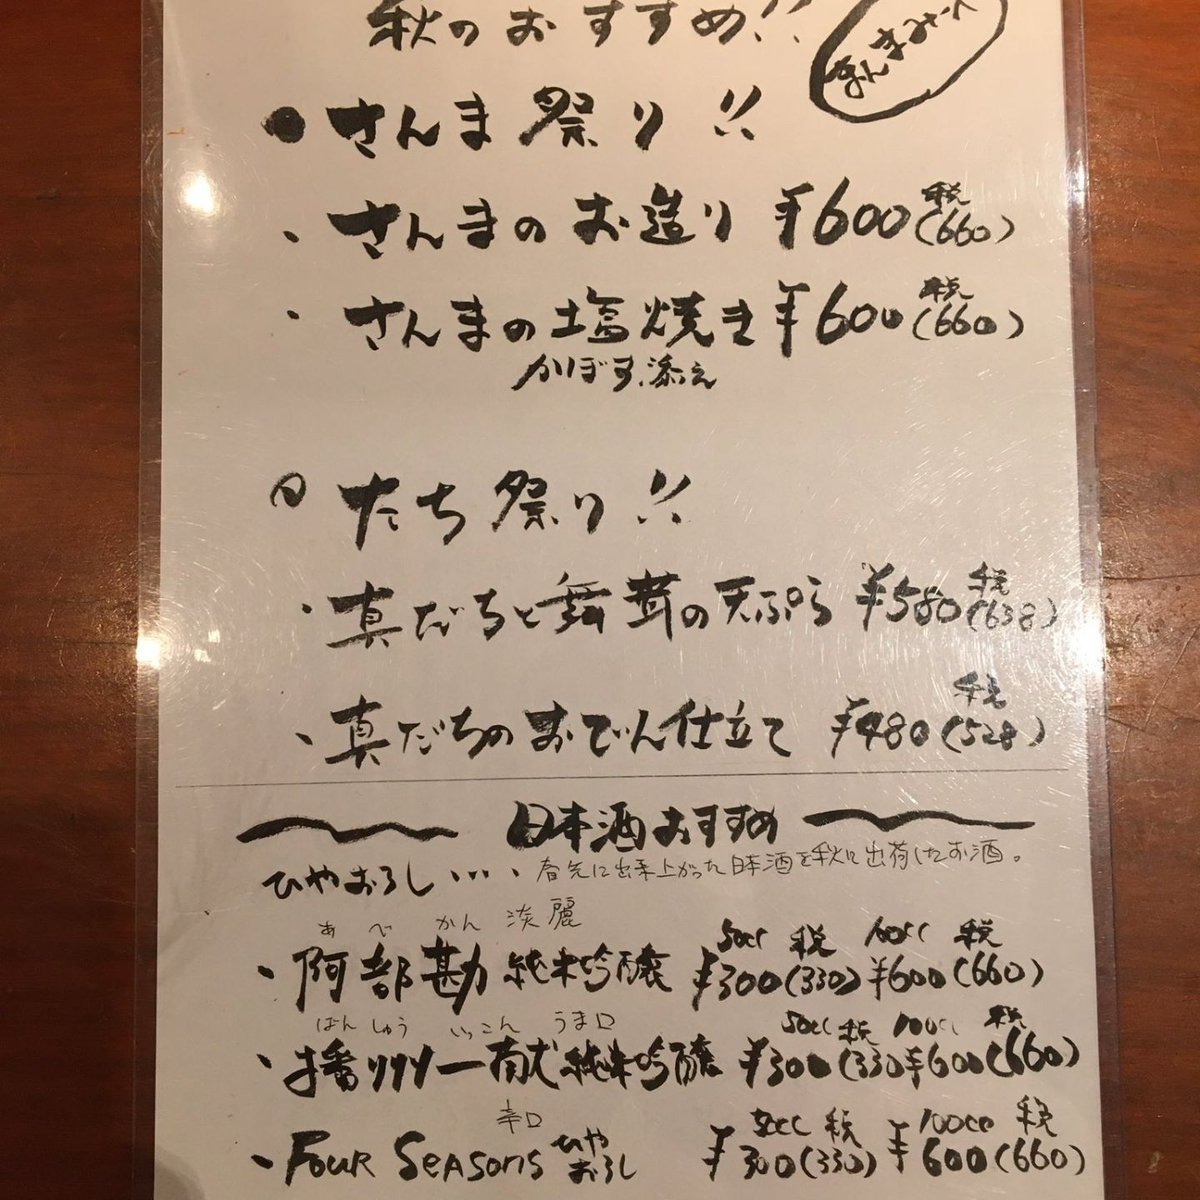 秋のおすすめ!!
さんま祭り!!
さんまのお造り ¥600 税(660)
さんまの塩焼き ¥600 税(660)
かぼす添え
たち祭り!!
真だちと舞茸の天ぷら ¥580 税(638)
真だちのおでん仕立て ¥480 税(528)
日本酒おすすめ
ひやおろし・・・・春先に出来上がった日本酒を秋に出荷したお酒。
あべ かん 淡麗
阿部勘 純米吟醸 50cc ¥300 税(330) 100cc ¥600 税(660)
ばんしゅう いっこん うま口
播州一献 純米吟醸 50cc ¥300 税(330) 100cc ¥600 税(660)
辛口
Four Seasons ひやおろし 50cc ¥300 税(330) 100cc ¥600 税(660)